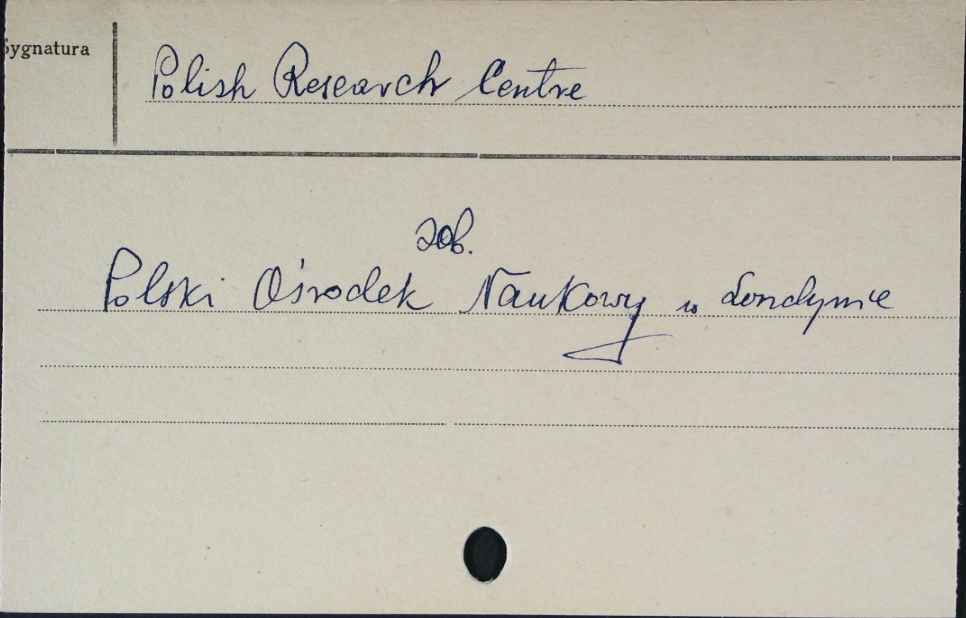 Sygnatura
Polish Research Centre
zob.
Polski Ośrodek Naukowy w Londynie